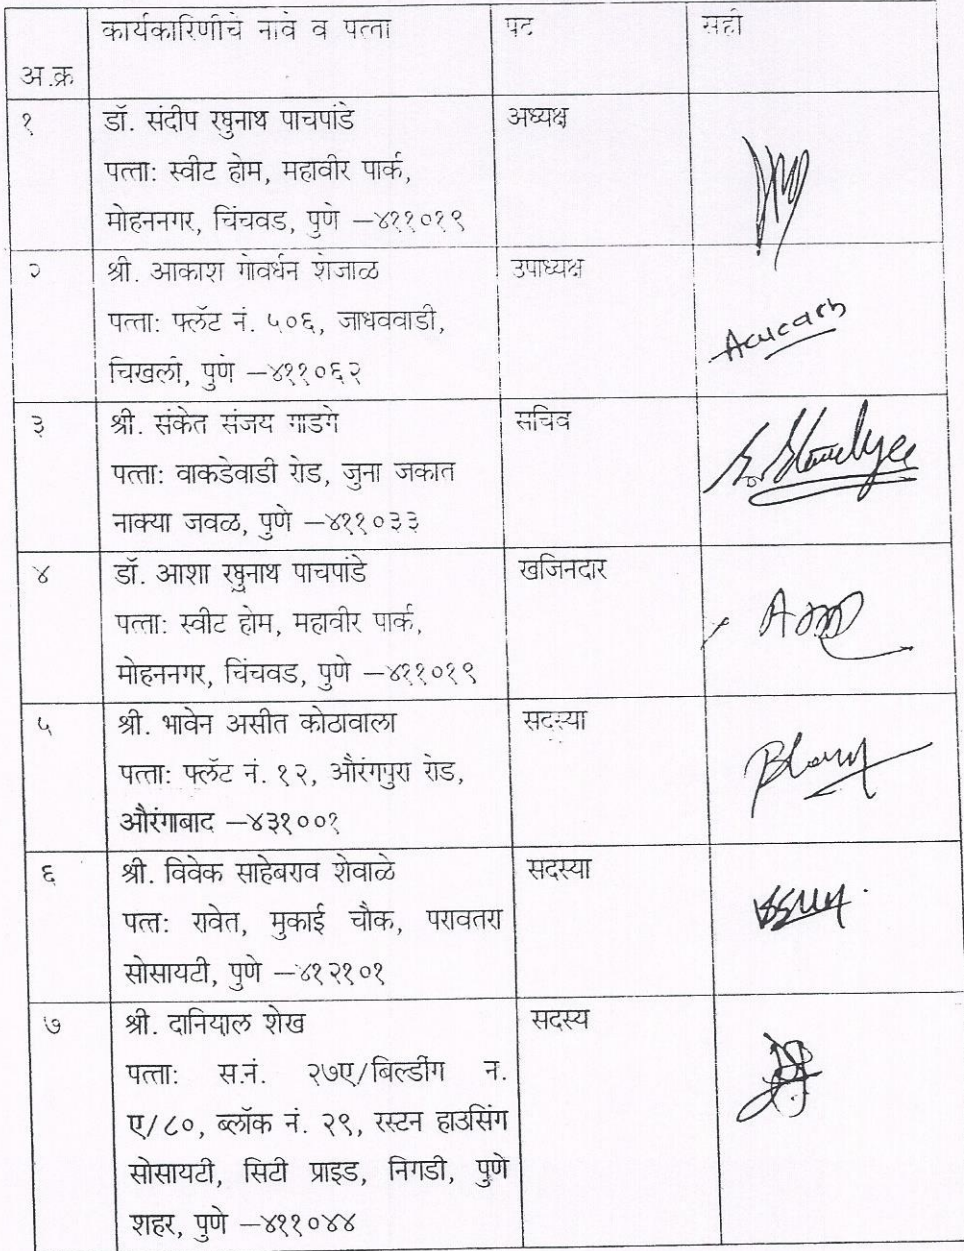 कार्यकारिणीचे नाव व पत्ता पद सही
अ.क्र
१ डॉ. संदीप रघुनाथ पाचपांडे अध्यक्ष
पत्ता: स्वीट होम, महावीर पार्क,
मोहननगर, चिंचवड, पुणे –४११०१९
२ श्री. आकाश गोवर्धन शेजाळ उपाध्यक्ष
पत्ता: फ्लॅट नं. ५०६, जाधववाडी,
चिखली, पुणे –४११०६२
३ श्री. संकेत संजय गाडगे सचिव
पत्ता: वाकडेवाडी रोड, जुना जकात
नाक्या जवळ, पुणे –४११०३३
४ डॉ. आशा रघुनाथ पाचपांडे खजिनदार
पत्ता: स्वीट होम, महावीर पार्क,
मोहननगर, चिंचवड, पुणे –४११०१९
५ श्री. भावेन असीत कोठावाला सदस्या
पत्ता: फ्लॅट नं. १२, औरंगपुरा रोड,
औरंगाबाद –४३१००१
६ श्री. विवेक साहेबराव शेवाळे सदस्या
पत्त: रावेत, मुकाई चौक, परावतरा
सोसायटी, पुणे –४१२१०१
७ श्री. दानियाल शेख सदस्य
पत्ता: स.नं. २७ए/बिल्डींग न.
ए/८०, ब्लॉक नं. २९, रस्टन हाउसिंग
सोसायटी, सिटी प्राइड, निगडी, पुणे
शहर, पुणे –४११०४४